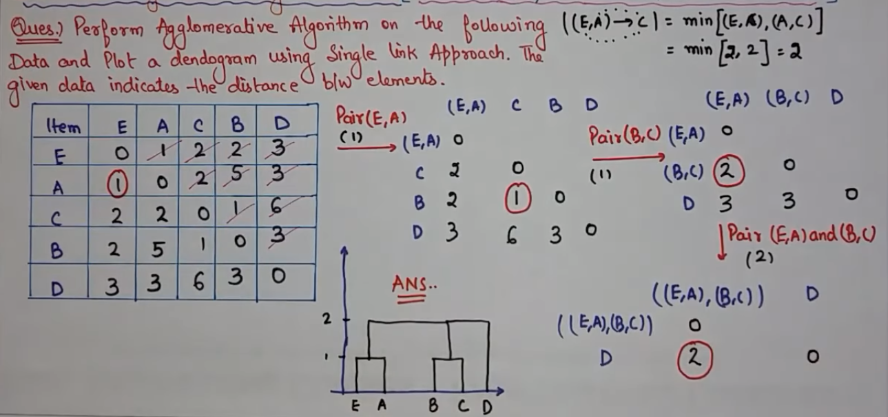 Ques.) Perform Agglomerative Algorithm on the following
Data and Plot a dendogram using Single link Approach. The
given data indicates the distance b/w elements.
((E,A)→C) = min[(E,C), (A,C)]
= min [2, 2] = 2
Item E A C B D
E 0 1 2 2 3
A 1 0 2 5 3
C 2 2 0 1 6
B 2 5 1 0 3
D 3 3 6 3 0
Pair(E,A)
(1)
(E,A) C B D
(E,A) 0
C 2 0
B 2 1 0
D 3 6 3 0
Pair(B,C)
(1)
(E,A) (B,C) D
(E,A) 0
(B,C) 2 0
D 3 3 0
Pair (E,A) and (B,C)
(2)
((E,A),(B,C)) D
((E,A),(B,C)) 0
D 2 0
ANS..
2
1
E A B C D